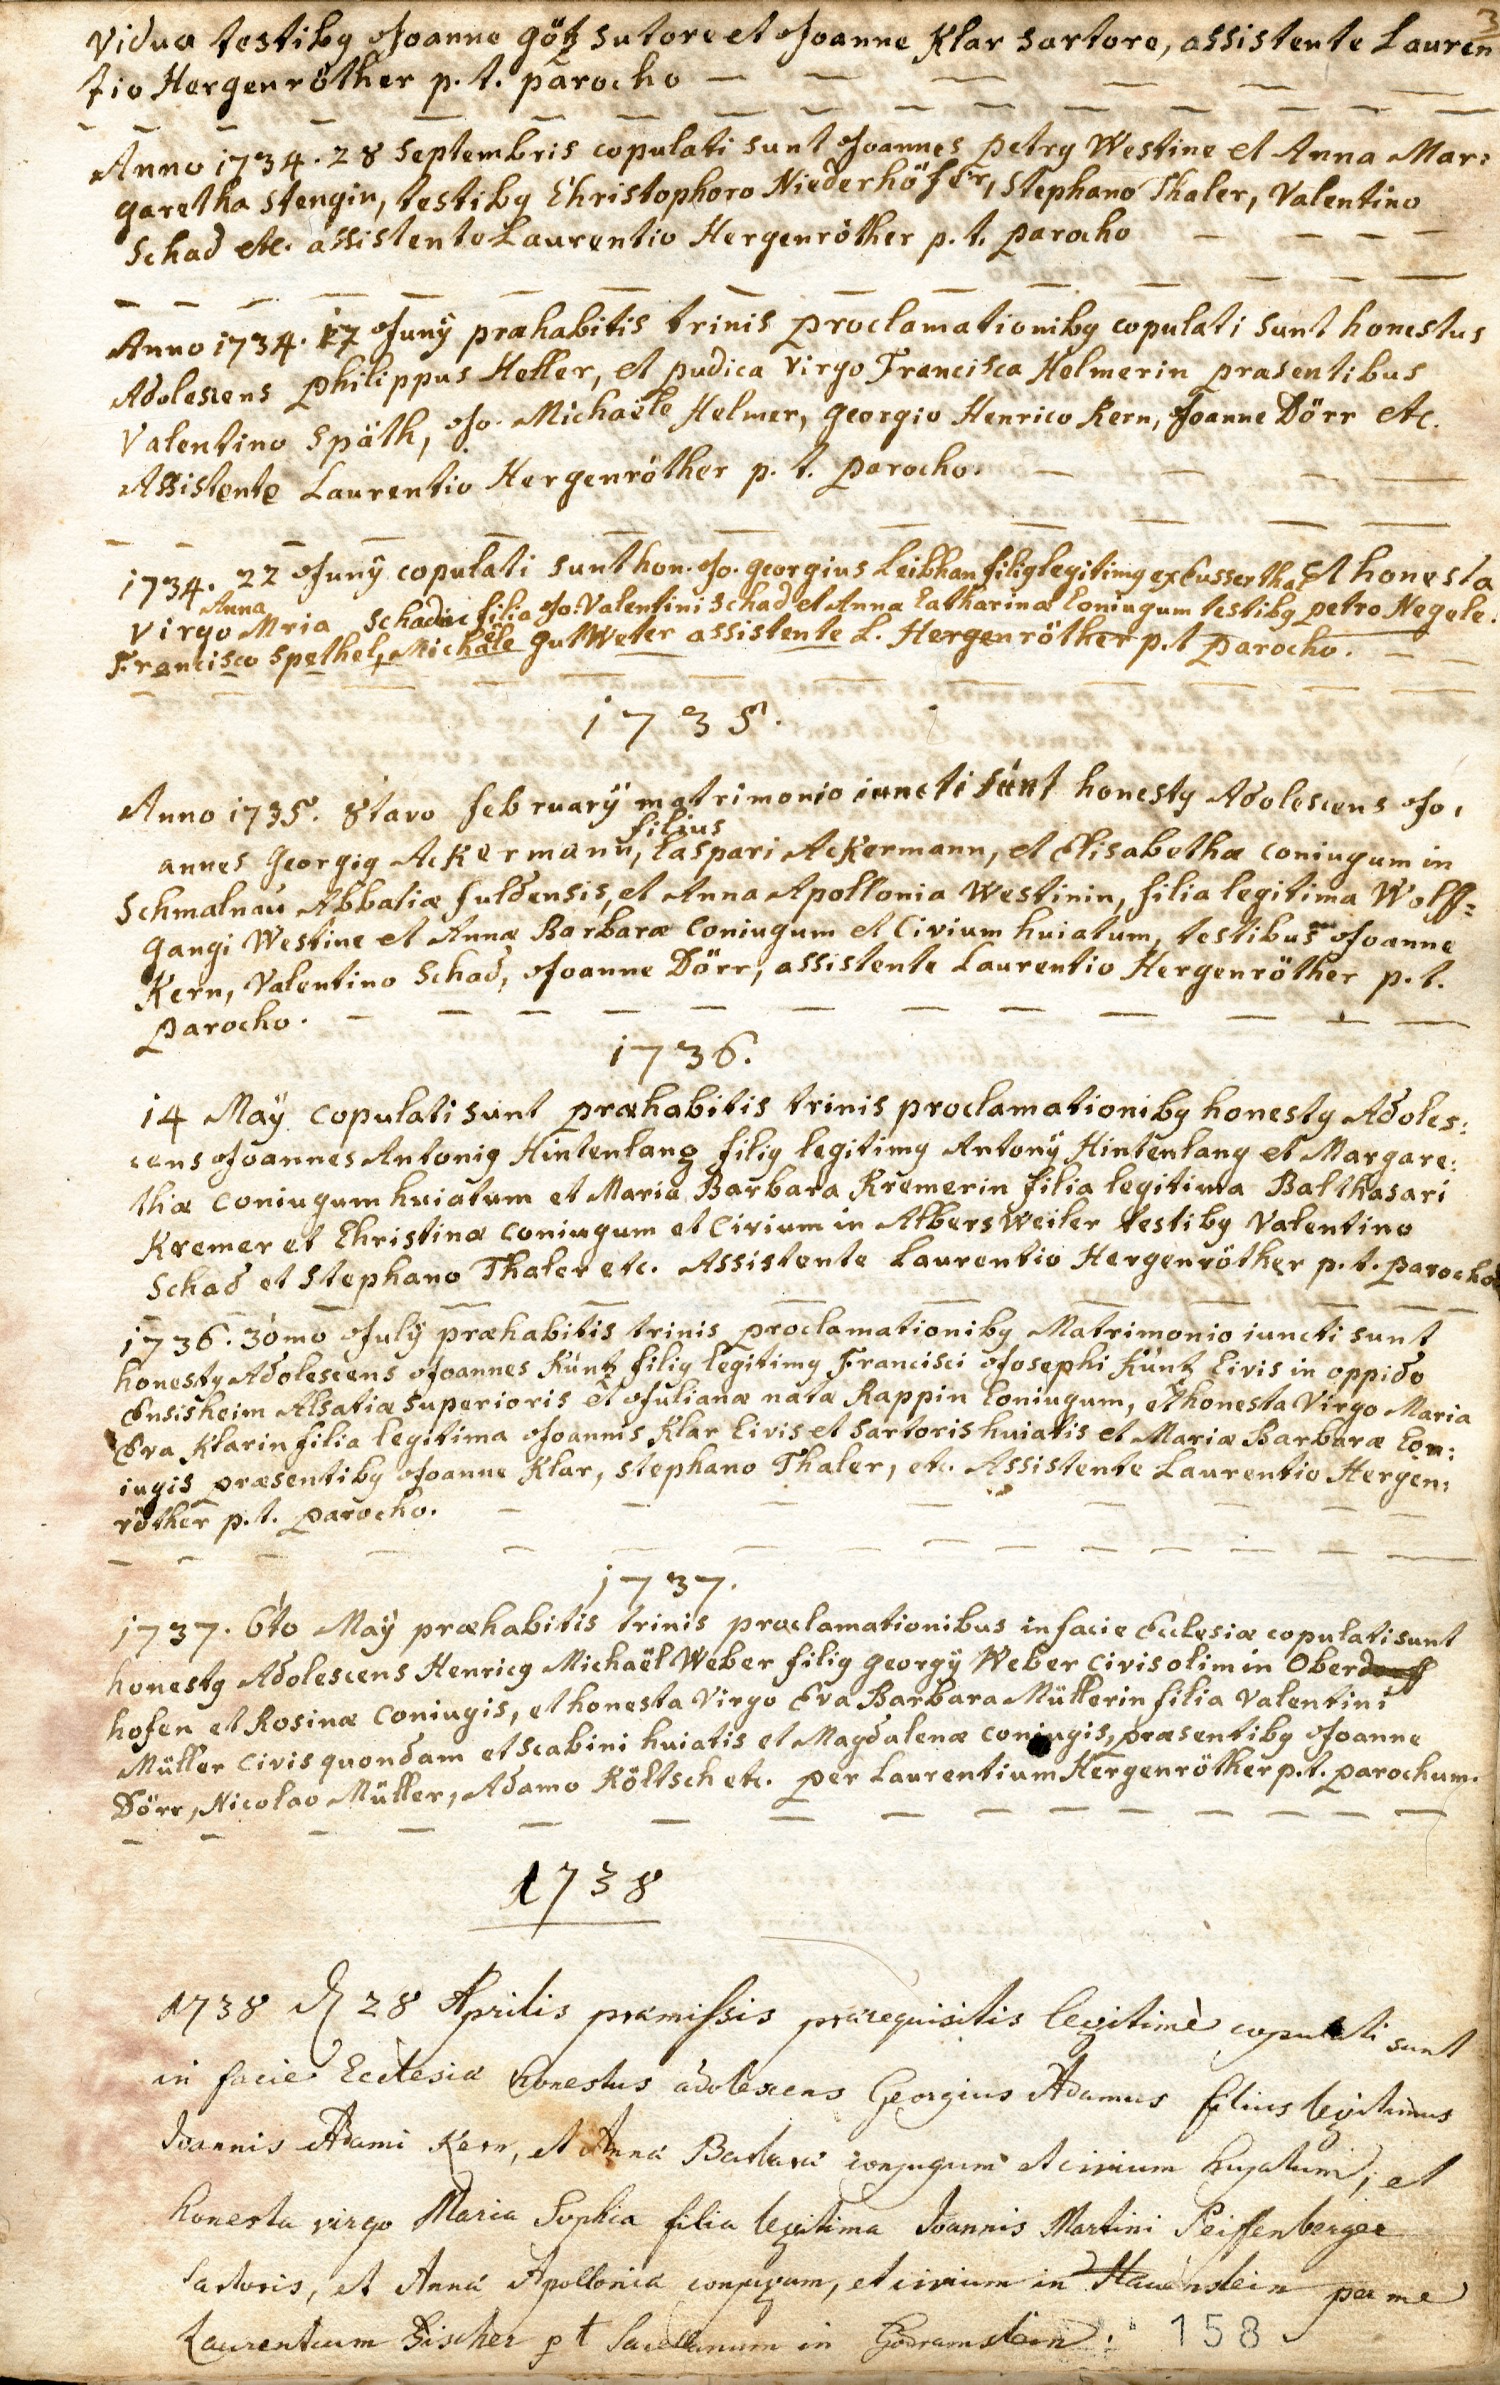 3
Vidua testibg Joanne Götz sutore et Joanne Klar sartore, assistente Lauren
tio Hergenröther p. t. parocho
Anno 1734. 28 Septembris copulati sunt Joannes petrg Westine et Anna Mar:
garetha Stengin, testibg Christophoro Niederhöfer, Stephano Thaler, Valentino
Schad etc. assistente Laurentio Hergenröther p. t. parocho
Anno 1734. 17 Junÿ præhabitis trinis proclamationibg copulati sunt honestus
Adolescens philippus Heller, et pudica virgo Francisca Helmerin præsentibus
Valentino Späth, Jo. Michaële Helmer, Georgio Henrico Kern, Joanne Dörr etc.
Assistente Laurentio Hergenröther p. t. parocho.
1734. 22 Junÿ copulati sunt hon. Jo. Georgius Leibhan filig legitimg ex Cusserthal et honesta
Anna
Virgo Mria Schadin filia Jo: Valentini Schad et Anna Catharina Coniugum testibg petro Negele.
Francisco Spethel, Michaële Gutweter assistente L. Hergenröther p.t parocho.
1735.
Anno 1735. 8tavo februarÿ matrimonio iuncti sunt honestg Adolescens Jo,
filius
annes Georgig Ackermann, Caspari Ackermann, et Elisabethæ coniugum in
Schmalnau Abbatiæ fuldensis, et Anna Apollonia Westinin, filia legitima Wolff=
gangi Westine et Annæ Barbaræ Coniugum et Civium huiatum, testibus Joanne
Kern, Valentino Schad, Joanne Dörr, assistente Laurentio Hergenröther p. t.
parocho.
1736.
14 Maÿ copulati sunt præhabitis trinis proclamationibg honestg Adoles:
cens Joannes Antonig Hintenlang filig legitimg Antonÿ Hintenlang et Margare:
thæ coniugum huiatum et Maria Barbara Kremerin filia legitima Balthasari
Kremer et Christinæ coniugum et Civium in Albersweiler testibg Valentino
Schad et Stephano Thaler etc. Assistente Laurentio Hergenröther p. t. parocho
1736. 30mo Julÿ præhabitis trinis proclamationibg Matrimonio iuncti sunt
honestg Adolescens Joannes Küntz filig legitimg Francisci Josephi Küntz Civis in oppido
Ensisheim Alsatiæ superioris et Julianæ nata Rappin Coniugum, et honesta Virgo Maria
Eva Klarin filia legitima Joannis Klar Civis et sartoris huiatis et Mariæ Barbaræ Con:
iugis præsentibg Joanne Klar, Stephano Thaler, etc. Assistente Laurentio Hergen:
röther p. t. parocho.
1737.
1737. 6to Maÿ præhabitis trinis proclamationibus in facie Ecclesiæ copulati sunt
honestg Adolescens Henricg Michaël Weber filig Georgÿ Weber Civis olim in Oberdorff
hofen et Rosinæ Coniugis, et honesta Virgo Eva Barbara Müllerin filia Valentini
Müller Civis quondam et scabini huiatis et Magdalenæ coniugis, præsentibg Joanne
Dörr, Nicolao Müller, Adamo Költsch etc. per Laurentium Hergenröther p.t. parochum.
1738
1738 28 Aprilis præmissis prærequisitis legitimè copulati sunt
in facie Ecclesiæ honestus adolescens Georgius Adamus filius legitimus
Joannis Adami Kern, et Annæ Barbaræ conjugum et civium hujatum, et
honesta virgo Maria Sophia filia legitima Joannis Martini Seiffenberger
Sartoris, et Annæ Apolloniæ conjugum, et civium in Hauenstein per me
Laurentium Fischer p t Sacellanum in Godramstein.
158